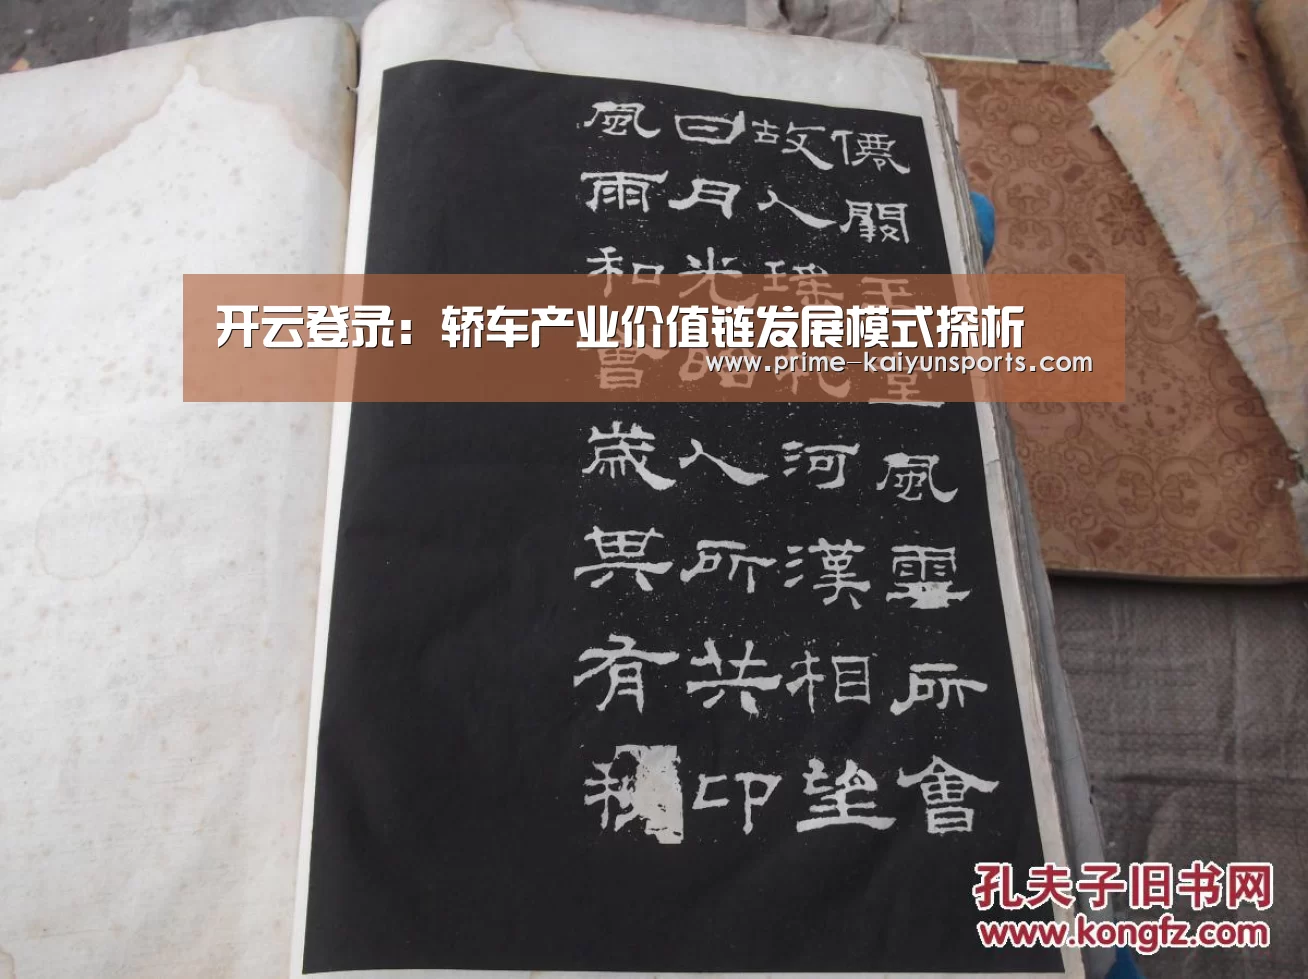 僊闕堂風雲所會
故人河漢相望
日月光人所共印
風雨和會歲異有
开云登录：轿车产业价值链发展模式探析
www.prime-kaiyunsports.com
孔夫子旧书网
www.kongfz.com